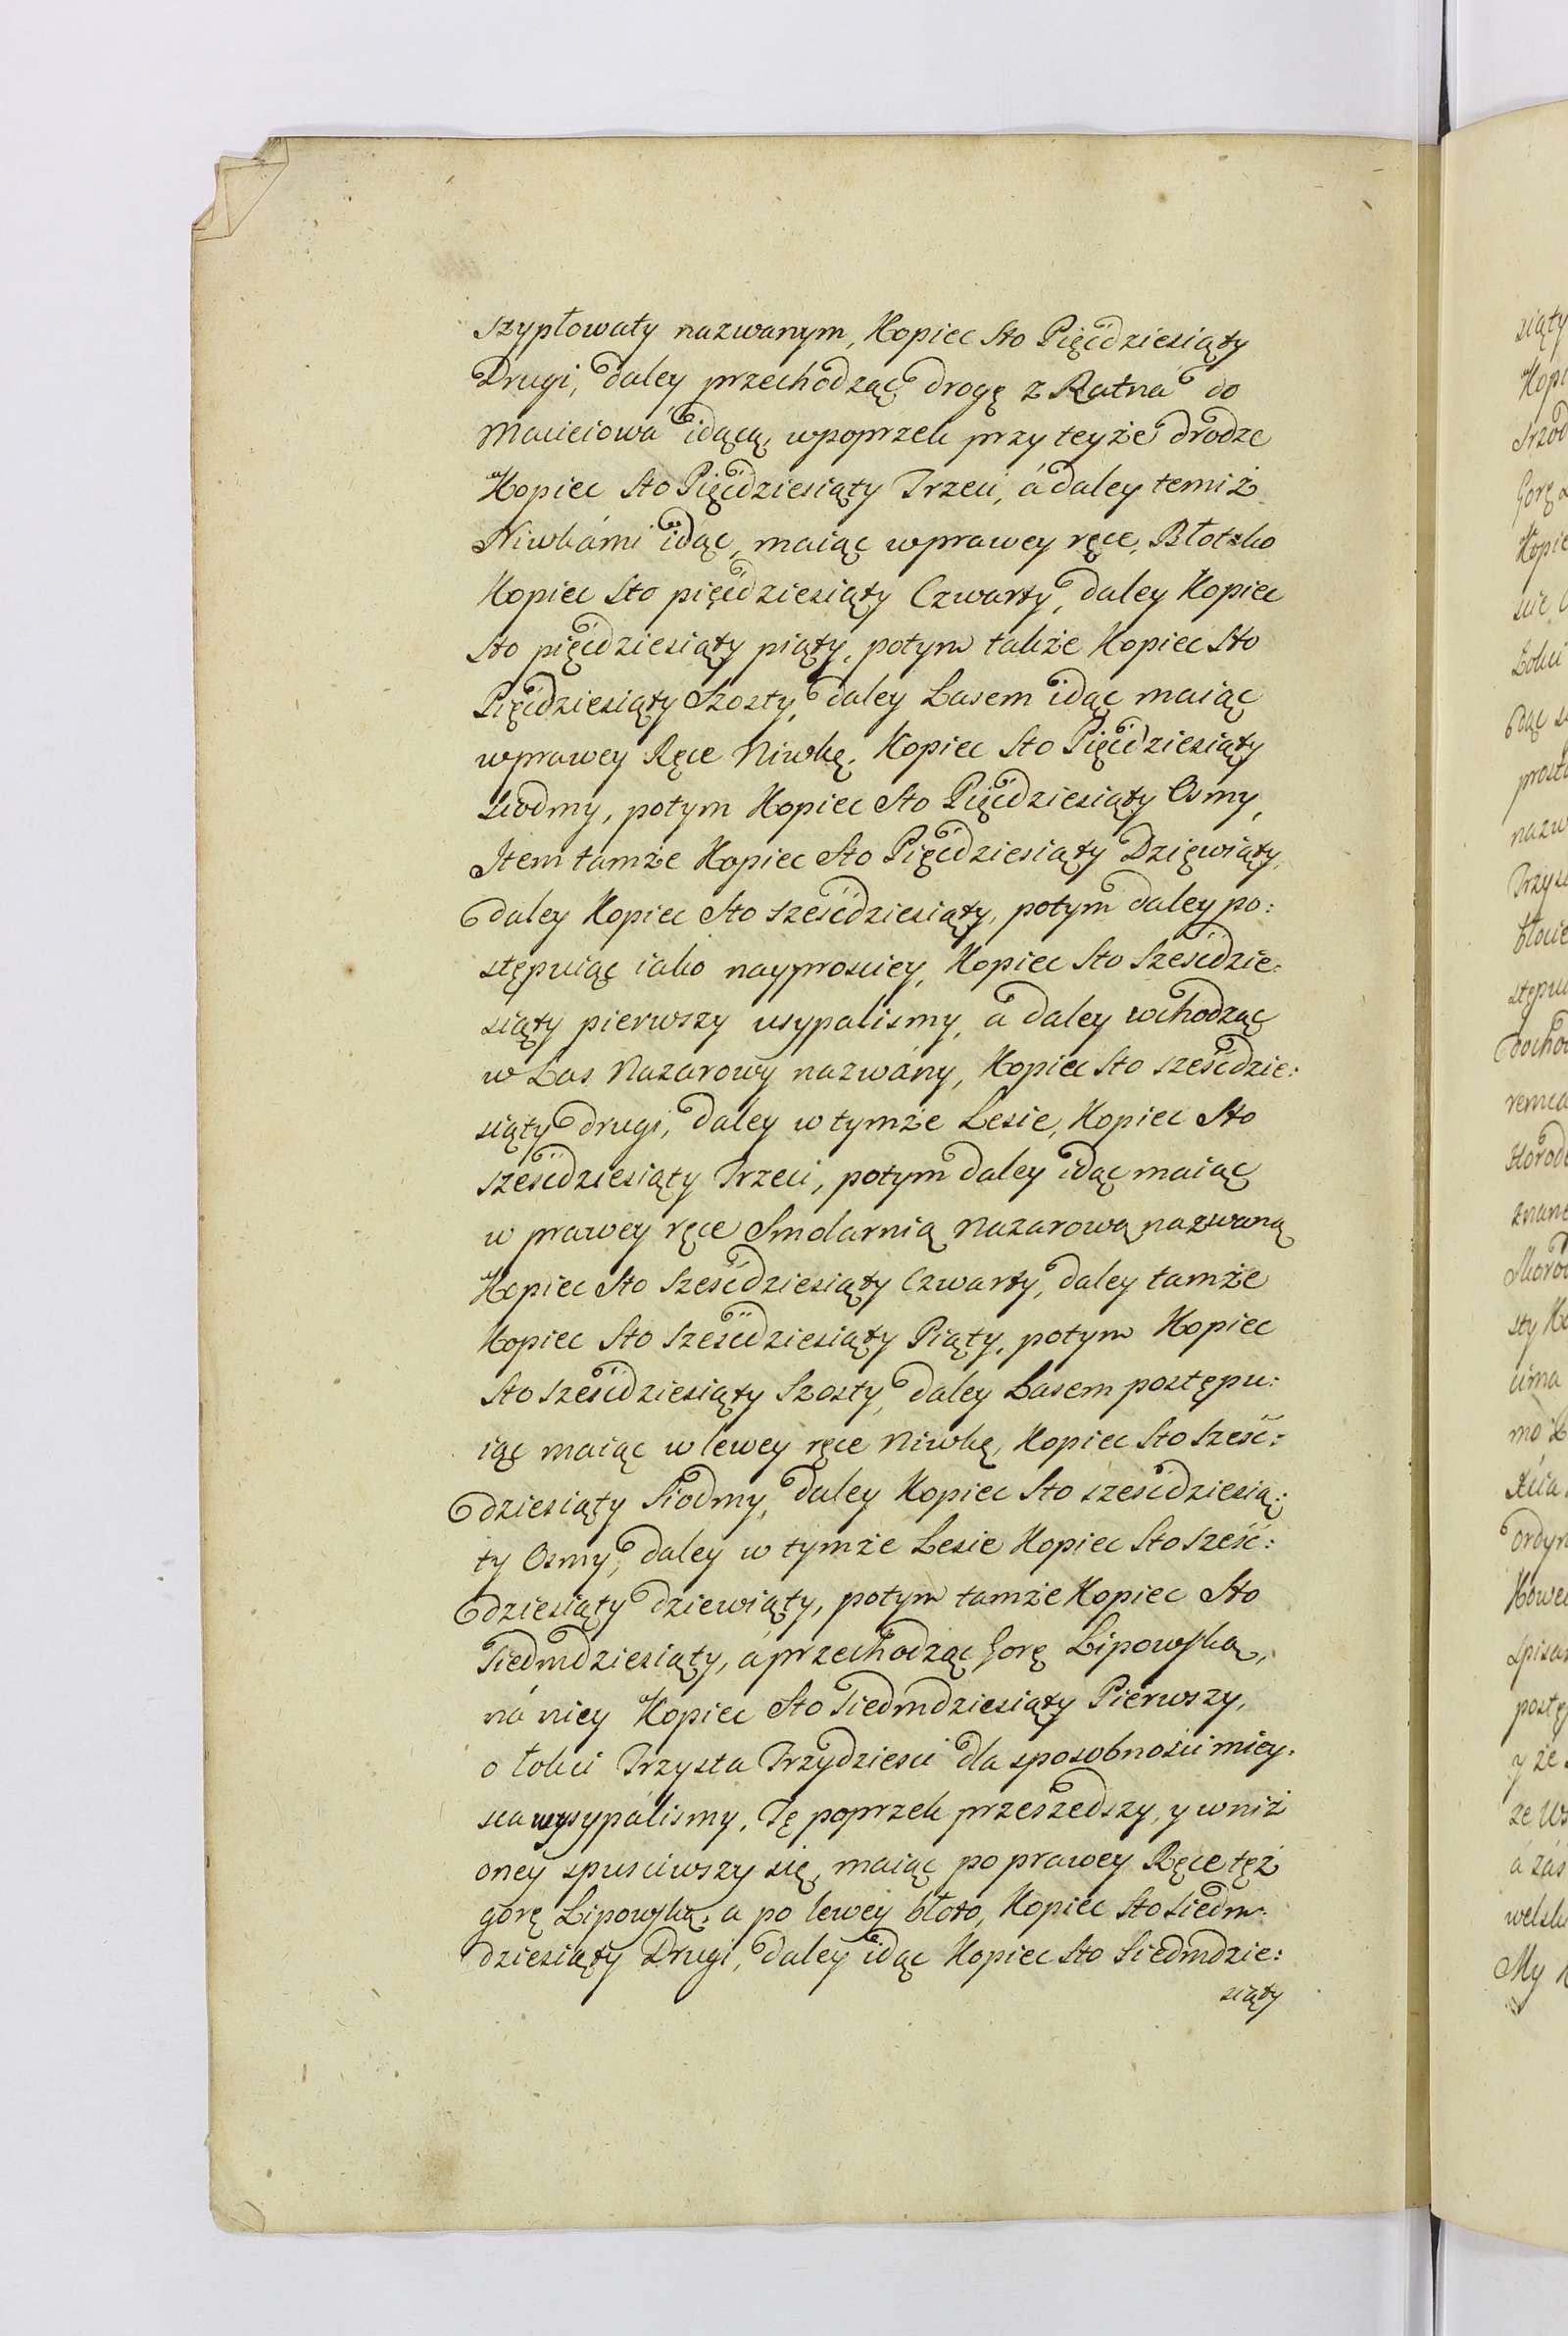 szypłowaty nazwanym, Kopiec Sto Pięćdziesiąty
Drugi, daley przechodząc drogę z Ratna do
Macieiowá idącą, wpoprzek przy teyże drodze
Kopiec Sto Pięćdziesiąty Trzeci, á daley temiż
Niwkámi idąc, maiąc wprawey ręce, Błotzko
Kopiec Sto pięćdziesiąty Czwarty, daley Kopiec
Sto pięćdziesiąty piąty, potym także Kopiec Sto
Pięćdziesiąty Szosty, daley Lasem idąc maiąc
wprawey Ręce Niwkę, Kopiec Sto Pięćdziesiąty
siodmy, potym Kopiec Sto Pięćdziesiąty Osmy,
Item tamże Kopiec Sto Pięćdziesiąty Dzięwiąty,
daley Kopiec Sto sześćdziesiąty, potym daley po:
stępuiąc iako nayprosciey, Kopiec Sto Sześćdzie:
siąty pierwszy usypalismy, a daley wchodząc
w Las Nazarowy nazwány, Kopiec Sto sześćdzie:
siąty drugi, daley w tymże Lesie, Kopiec Sto
sześćdziesiąty Trzeci, potym daley idąc maiąc
w prawey ręce Smolarnią Nazarową nazwaną
Kopiec Sto Sześćdziesiąty Czwarty, daley tamże
Kopiec Sto Sześćdziesiąty Piąty, potym Kopiec
Sto Sześćdziesiąty Szosty, daley Lasem postępu:
iąc maiąc w lewey ręce Niwkę, Kopiec Sto Sześć:
dziesiąty Siodmy, daley Kopiec Sto sześćdziesią:
ty Osmy, daley w tymże Lesie Kopiec Sto Sześć:
dziesiąty dziewiąty, potym tamże Kopiec Sto
Siedmdziesiąty, á przechodząc Gorę Lipowską,
ná niey Kopiec Sto Siedmdziesiąty Pierwszy,
o łokci Trzysta Trzydziesci dla sposobności miey:
sca wysypálismy, Tę poprzek przeszedszy, y wniż
oney spusciwszy się, maiąc po prawey Ręce tęż
gorę Lipowską, a po lewey błoto, Kopiec Sto siedm:
dziesiąty Drugi, daley idąc Kopiec Sto Siedmdzie:
siąty